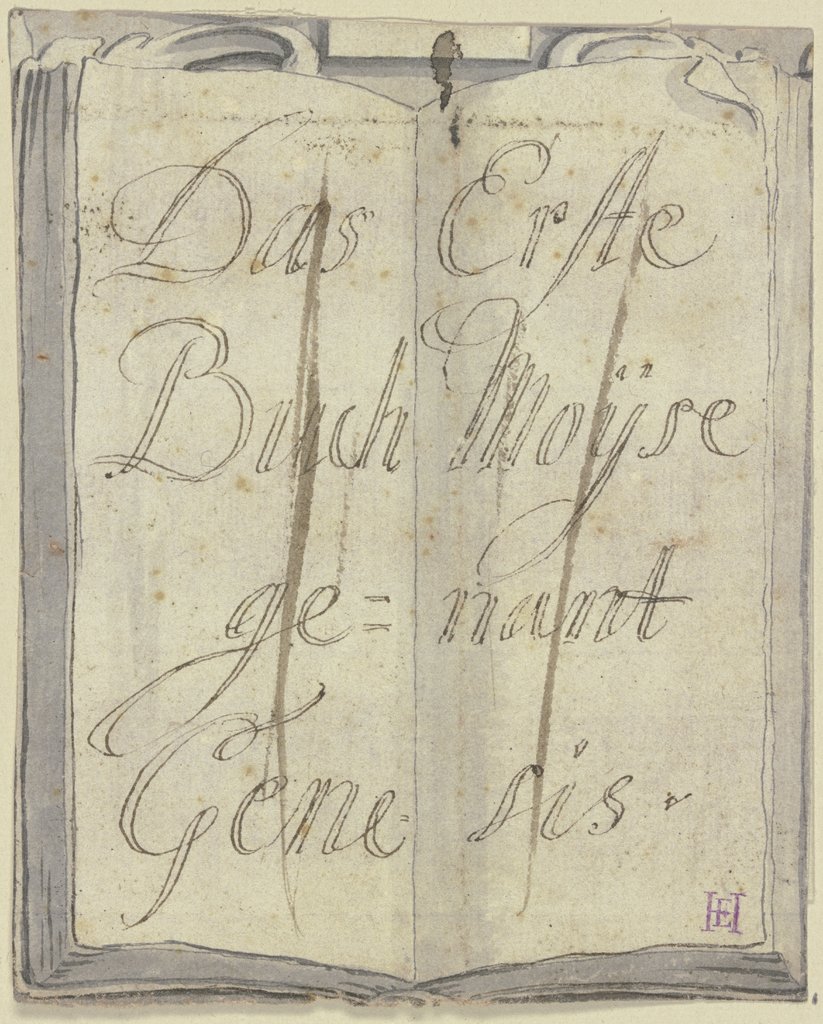 Das Erste
Buch Moÿse
ge= nannt
Gene= sis.
HE